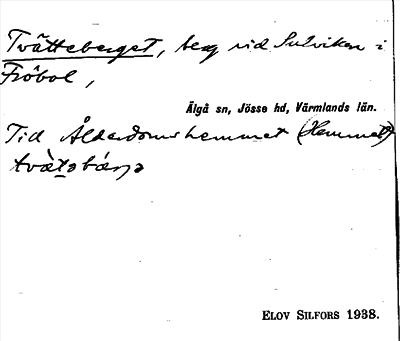 Tvätteberget, berg vid Sulviken i
Fröbol,
Älgå sn, Jösse hd, Värmlands län.
Till Ålderdomshemmet (Hemmet)
ELOV SILFORS 1938.